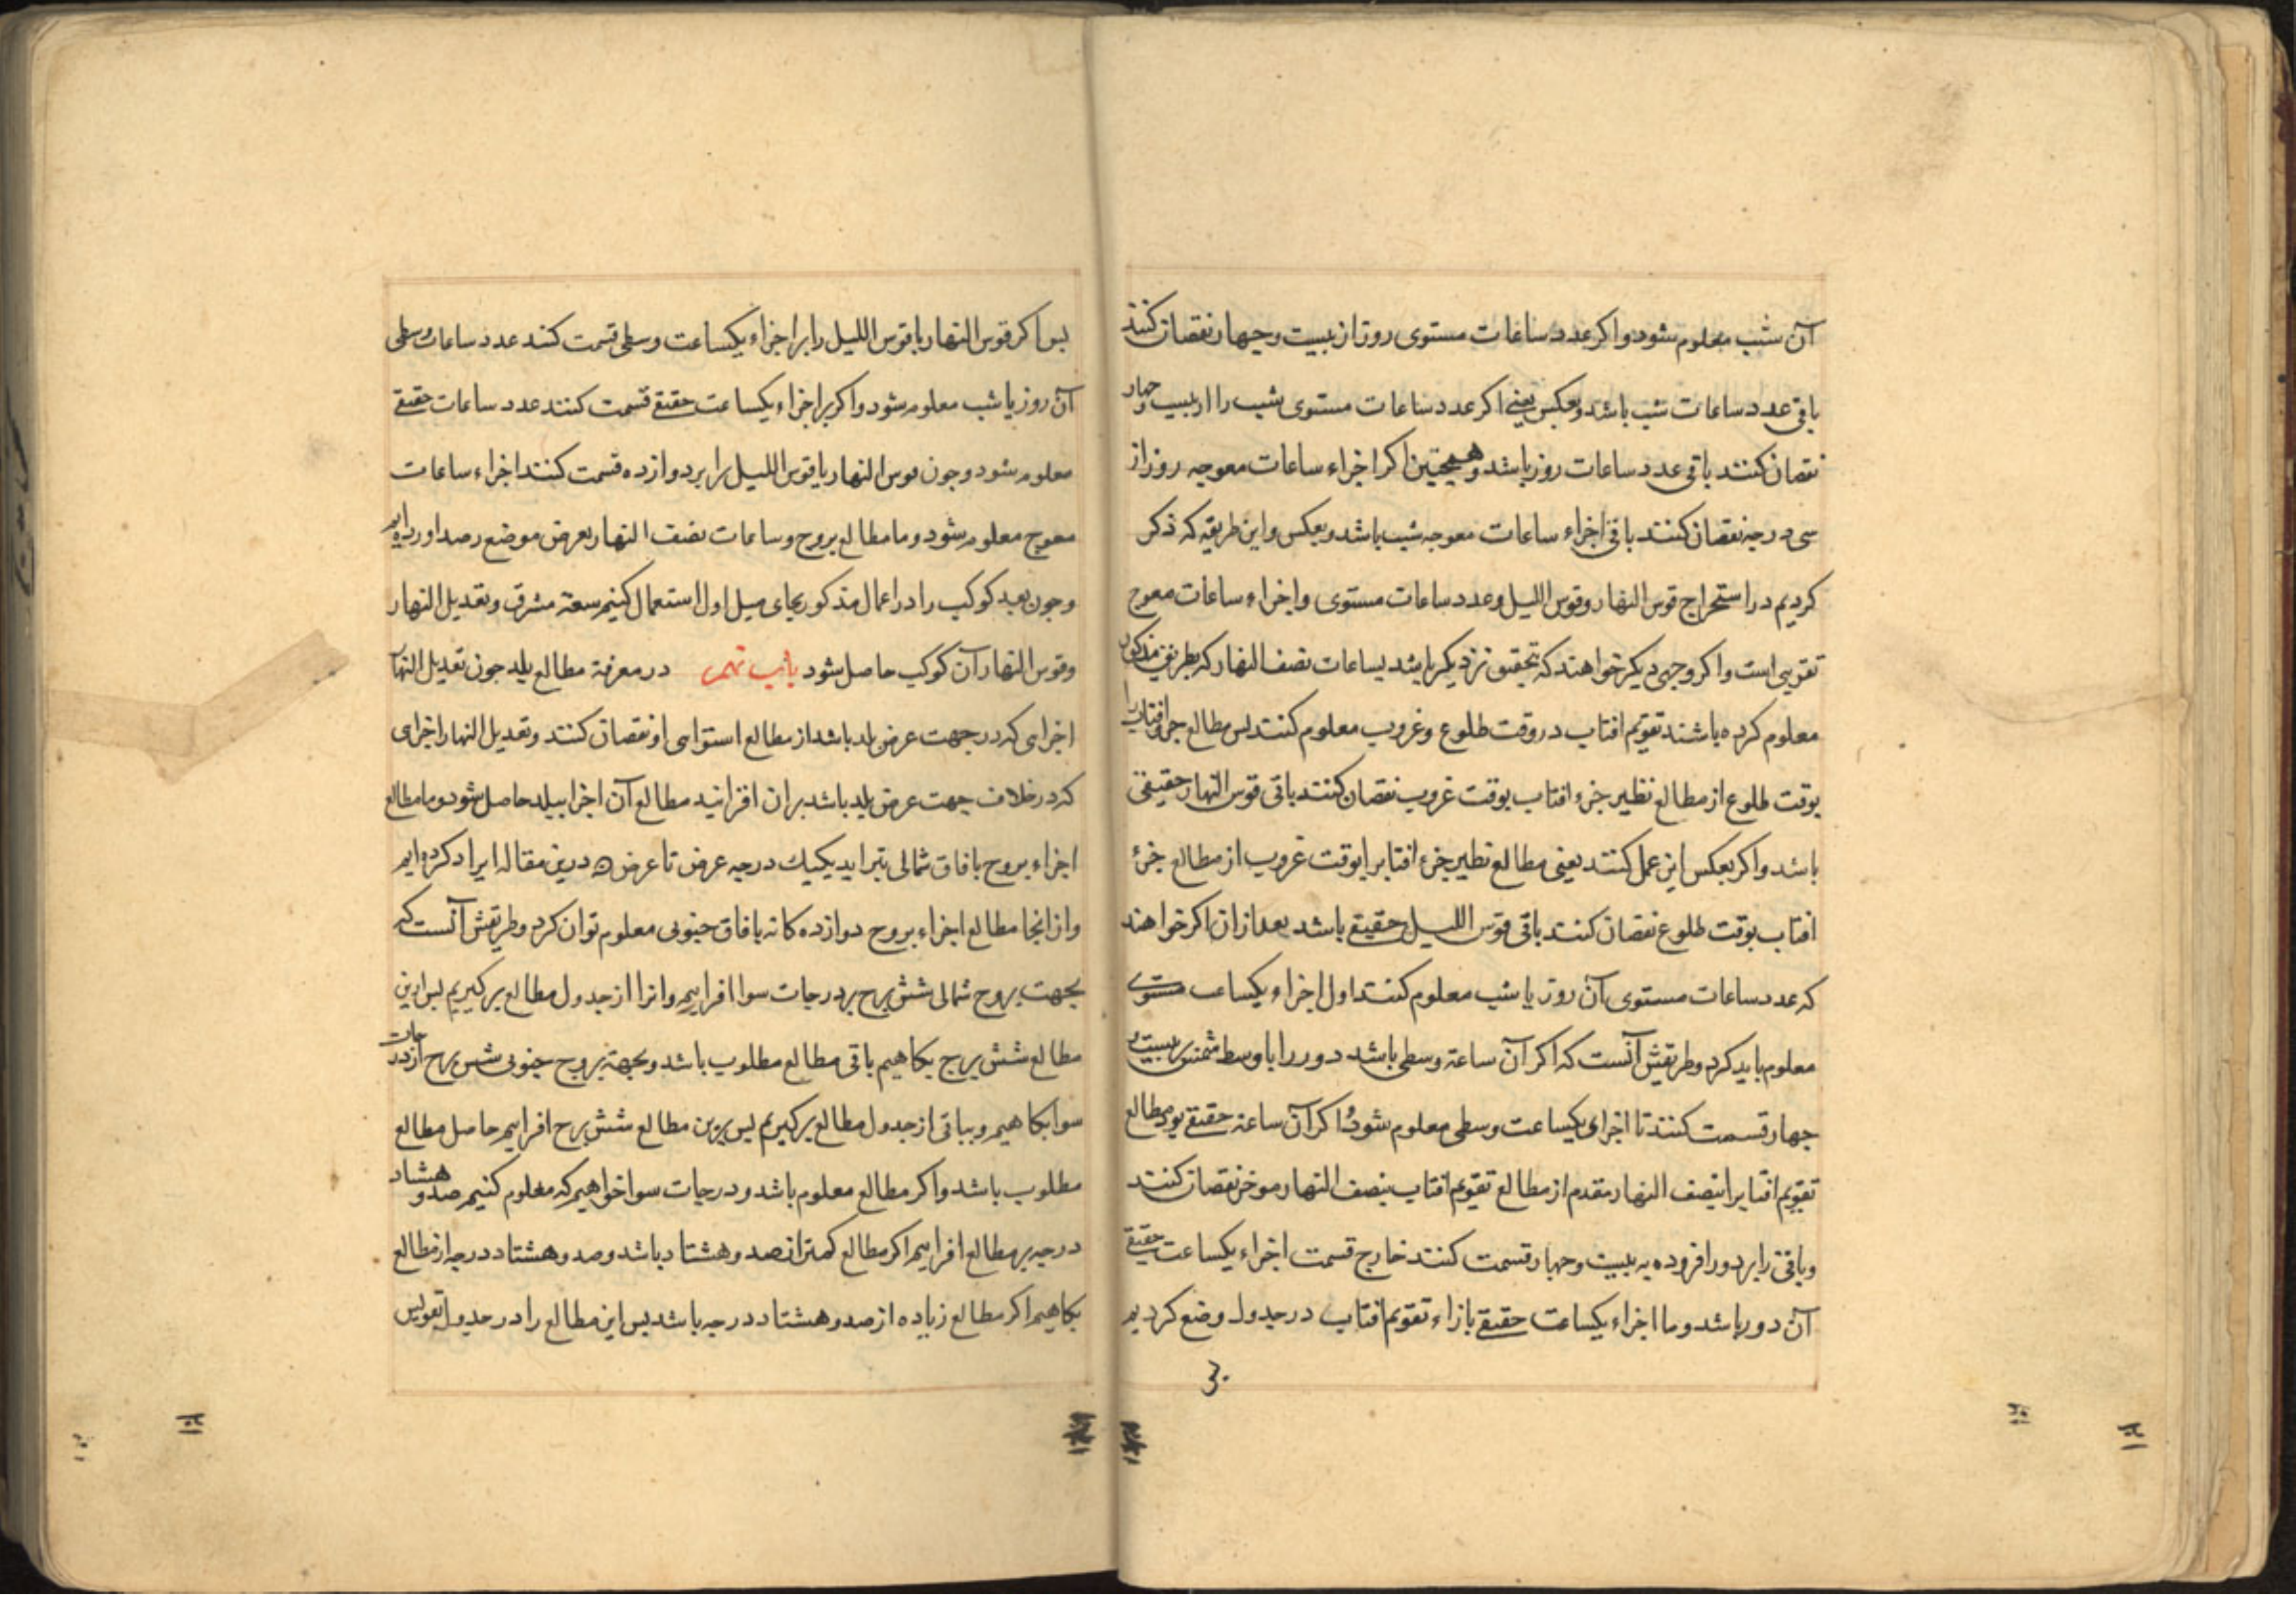 آن شب معلوم شود و اکر عدد ساعات مستوی روز از بیست و چهار نقصان کنند
باقی عدد ساعات شب باشد و بعکس یعنی اکر عدد ساعات مستوی شب را از بیست و چهار
نقصان کنند باقی عدد ساعات روز باشد و همچنین اکر اجزاء ساعات معوجه روز از
سی درجه نقصان کنند باقی اجزاء ساعات معوجه شب باشد و بعکس و این طریقه که ذکر
کردیم در استخراج قوس النهار و قوس اللیل و عدد ساعات مستوی و اجزاء ساعات معوج
تقریبی است و اکر وجهی دیکر خواهند که بتحقیق نزدیکتر باشد بساعات نصف النهار که بطریق مذکور
معلوم کرده باشند تقویم افتاب در وقت طلوع و غروب معلوم کنند پس مطالع جزو افتاب را
بوقت طلوع از مطالع نظیر جزء افتاب بوقت غروب نقصان کنند باقی قوس النهار حقیقی
باشد و اکر بعکس این عمل کنند یعنی مطالع نظیر جزء افتاب را بوقت غروب از مطالع جزء
افتاب بوقت طلوع نقصان کنند باقی قوس اللیل حقیقی باشد بعد ازان اکر خواهند
که عدد ساعات مستوی آن روز یا شب معلوم کنند اول اجزاء یکساعت مستوی
معلوم باید کرد و طریقش آنست که اکر آن ساعة وسطی باشد دور را با وسط شمس بر بیست و
چهار قسمت کنند تا اجزای یکساعت وسطی معلوم شود و اکر آن ساعة حقیقی بود مطالع
تقویم افتاب را بنصف النهار مقدم از مطالع تقویم افتاب بنصف النهار موخر نقصان کنند
و باقی را بر دور افزوده به بیست و چهار قسمت کنند خارج قسمت اجزاء یکساعت حقیقی
آن دور باشد و ما اجزاء یکساعت حقیقی بازاء تقویم افتاب در جدول وضع کردیم
پس اکر قوس النهار یا قوس اللیل را بر اجزاء یکساعت وسطی قسمت کنند عدد ساعات وسطی
آن روز یا شب معلوم شود و اکر بر اجزاء یکساعت حقیقی قسمت کنند عدد ساعات حقیقی
معلوم شود و چون قوس النهار یا قوس اللیل را بر دوازده قسمت کنند اجزاء ساعات
معوج معلوم شود و ما مطالع بروج و ساعات نصف النهار بعرض موضع رصد اورده ایم
و چون بعد کوکب را در اعمال مذکور بجای میل اول استعمال کنیم سعة مشرق و تعدیل النهار
و قوس النهار آن کوکب حاصل شود باب نهم در معرفة مطالع بلد چون تعدیل النهار
اجزایی که در جهت عرض بلد باشد از مطالع استوایی او نقصان کنند و تعدیل النهار اجزایی
که در خلاف جهت عرض بلد باشد بران افزایند مطالع آن اجزا ببلد حاصل شود و ما مطالع
اجزاء بروج بافاق شمالی بتزاید یکیك درجه عرض تا عرض ن درین مقاله ایراد کرده ایم
و از انجا مطالع اجزاء بروج دوازده کانه بافاق جنوبی معلوم توان کرد و طریقش آنست که
بجهت بروج شمالی شش برج بر درجات سوا افزاییم و انرا از جدول مطالع برکیریم پس ازین
مطالع شش برج بکاهیم باقی مطالع مطلوب باشد و بجهة بروج جنوبی شش برج از درجات
سوا بکاهیم و بباقی از جدول مطالع برکیریم پس برین مطالع شش برج افزاییم حاصل مطالع
مطلوب باشد و اکر مطالع معلوم باشد و درجات سوا خواهیم که معلوم کنیم صد و هشتاد
درجه بر مطالع افزاییم اکر مطالع کمتر از صد و هشتاد باشد و صد و هشتاد درجه از مطالع
بکاهیم اکر مطالع زیاده از صد و هشتاد درجه باشد پس این مطالع را در جدول تقویس